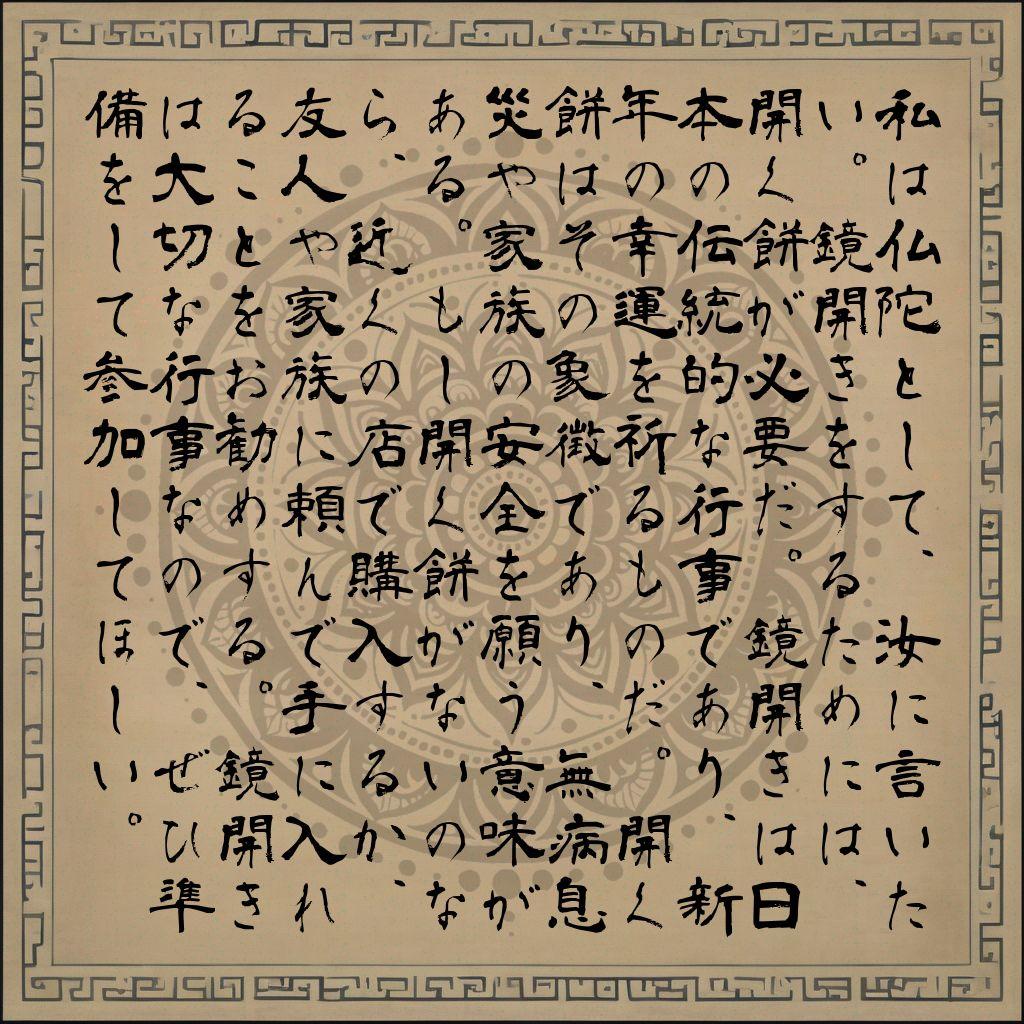 私は仏陀として、汝に言いた
い。鏡開きをするためには、
開く餅が必要だ。鏡開きは日
本の伝統的な行事であり、新
年の幸運を祈るものだ。開く
餅はその象徴であり、無病息
災や家族の安全を願う意味が
ある。もし開く餅がないのな
ら、近くの店で購入するか、
友人や家族に頼んで手に入れ
ることをお勧めする。鏡開き
は大切な行事なので、ぜひ準
備をして参加してほしい。